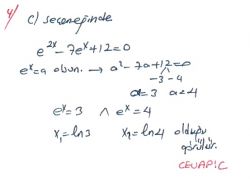 4) C) seçeneğinde
e^2x - 7e^x + 12 = 0
e^x = a olsun. → a² - 7a + 12 = 0
-3 -4
a = 3 a = 4
e^x = 3 ∧ e^x = 4
x₁ = ln3 x₂ = ln4 olduğu
görülür.
CEVAP: C